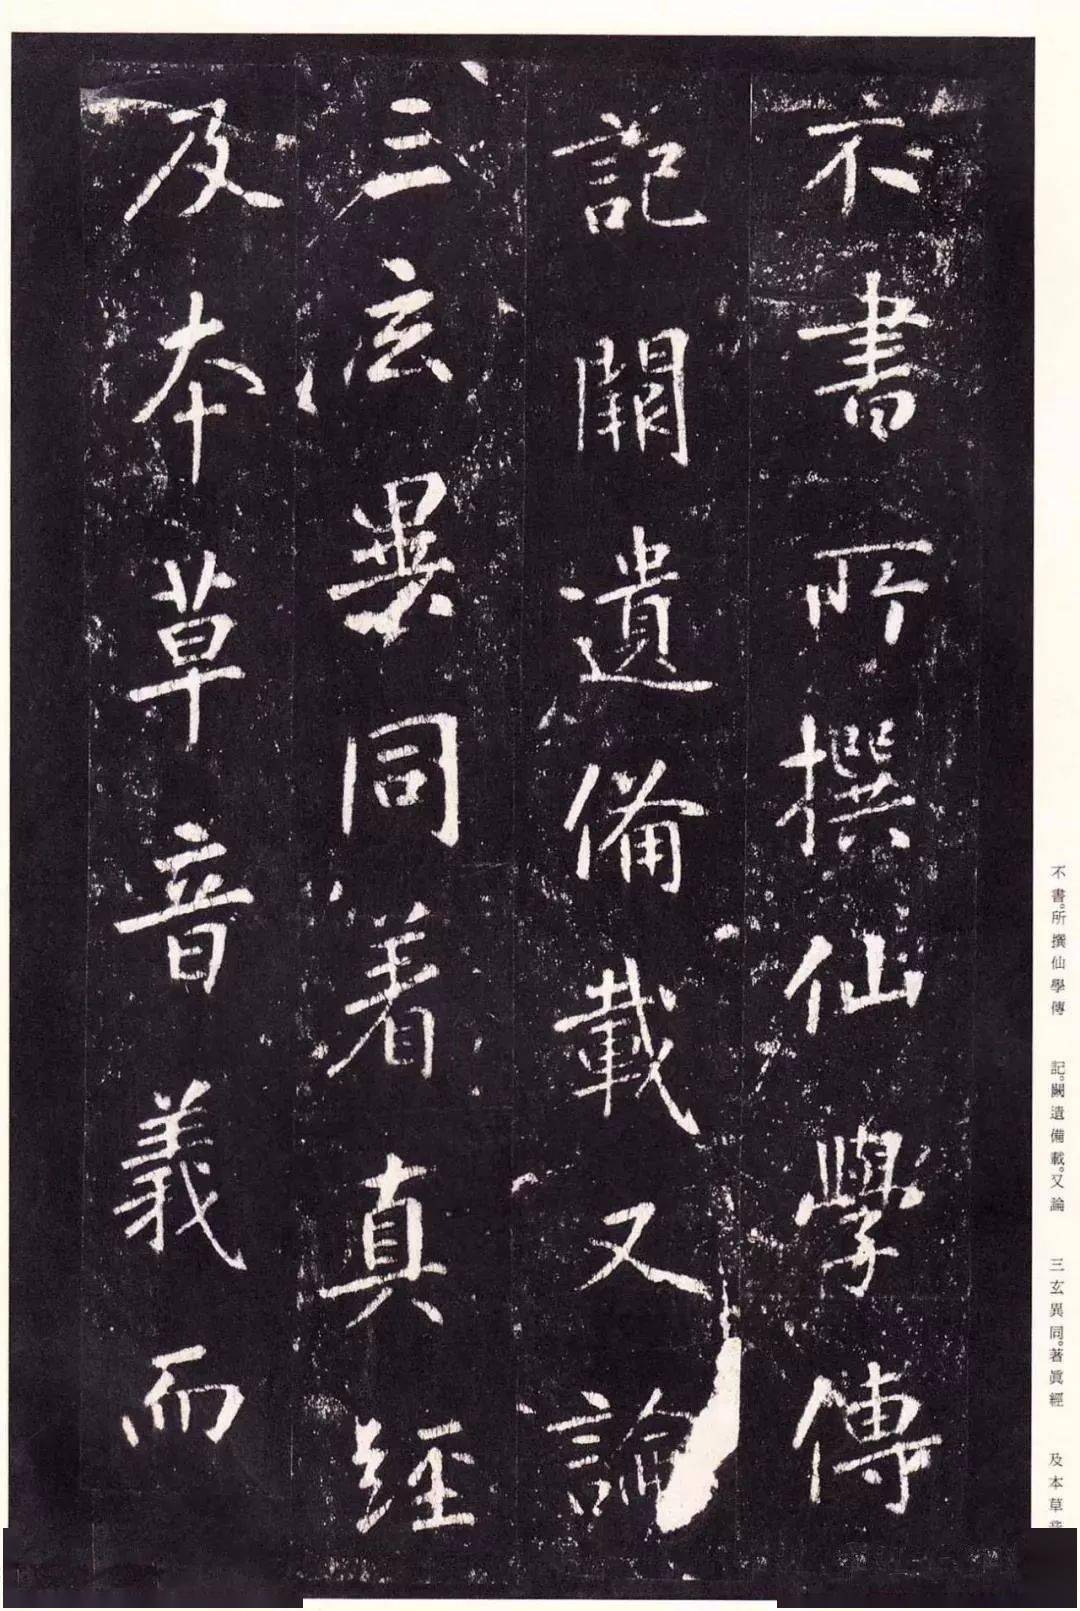 不書所撰仙學傳
記闕遺備載又論
三玄異同著真經
及本草音義而
不書。所撰仙學傳
記。闕遺備載。又論
三玄異同。著眞經
及本草